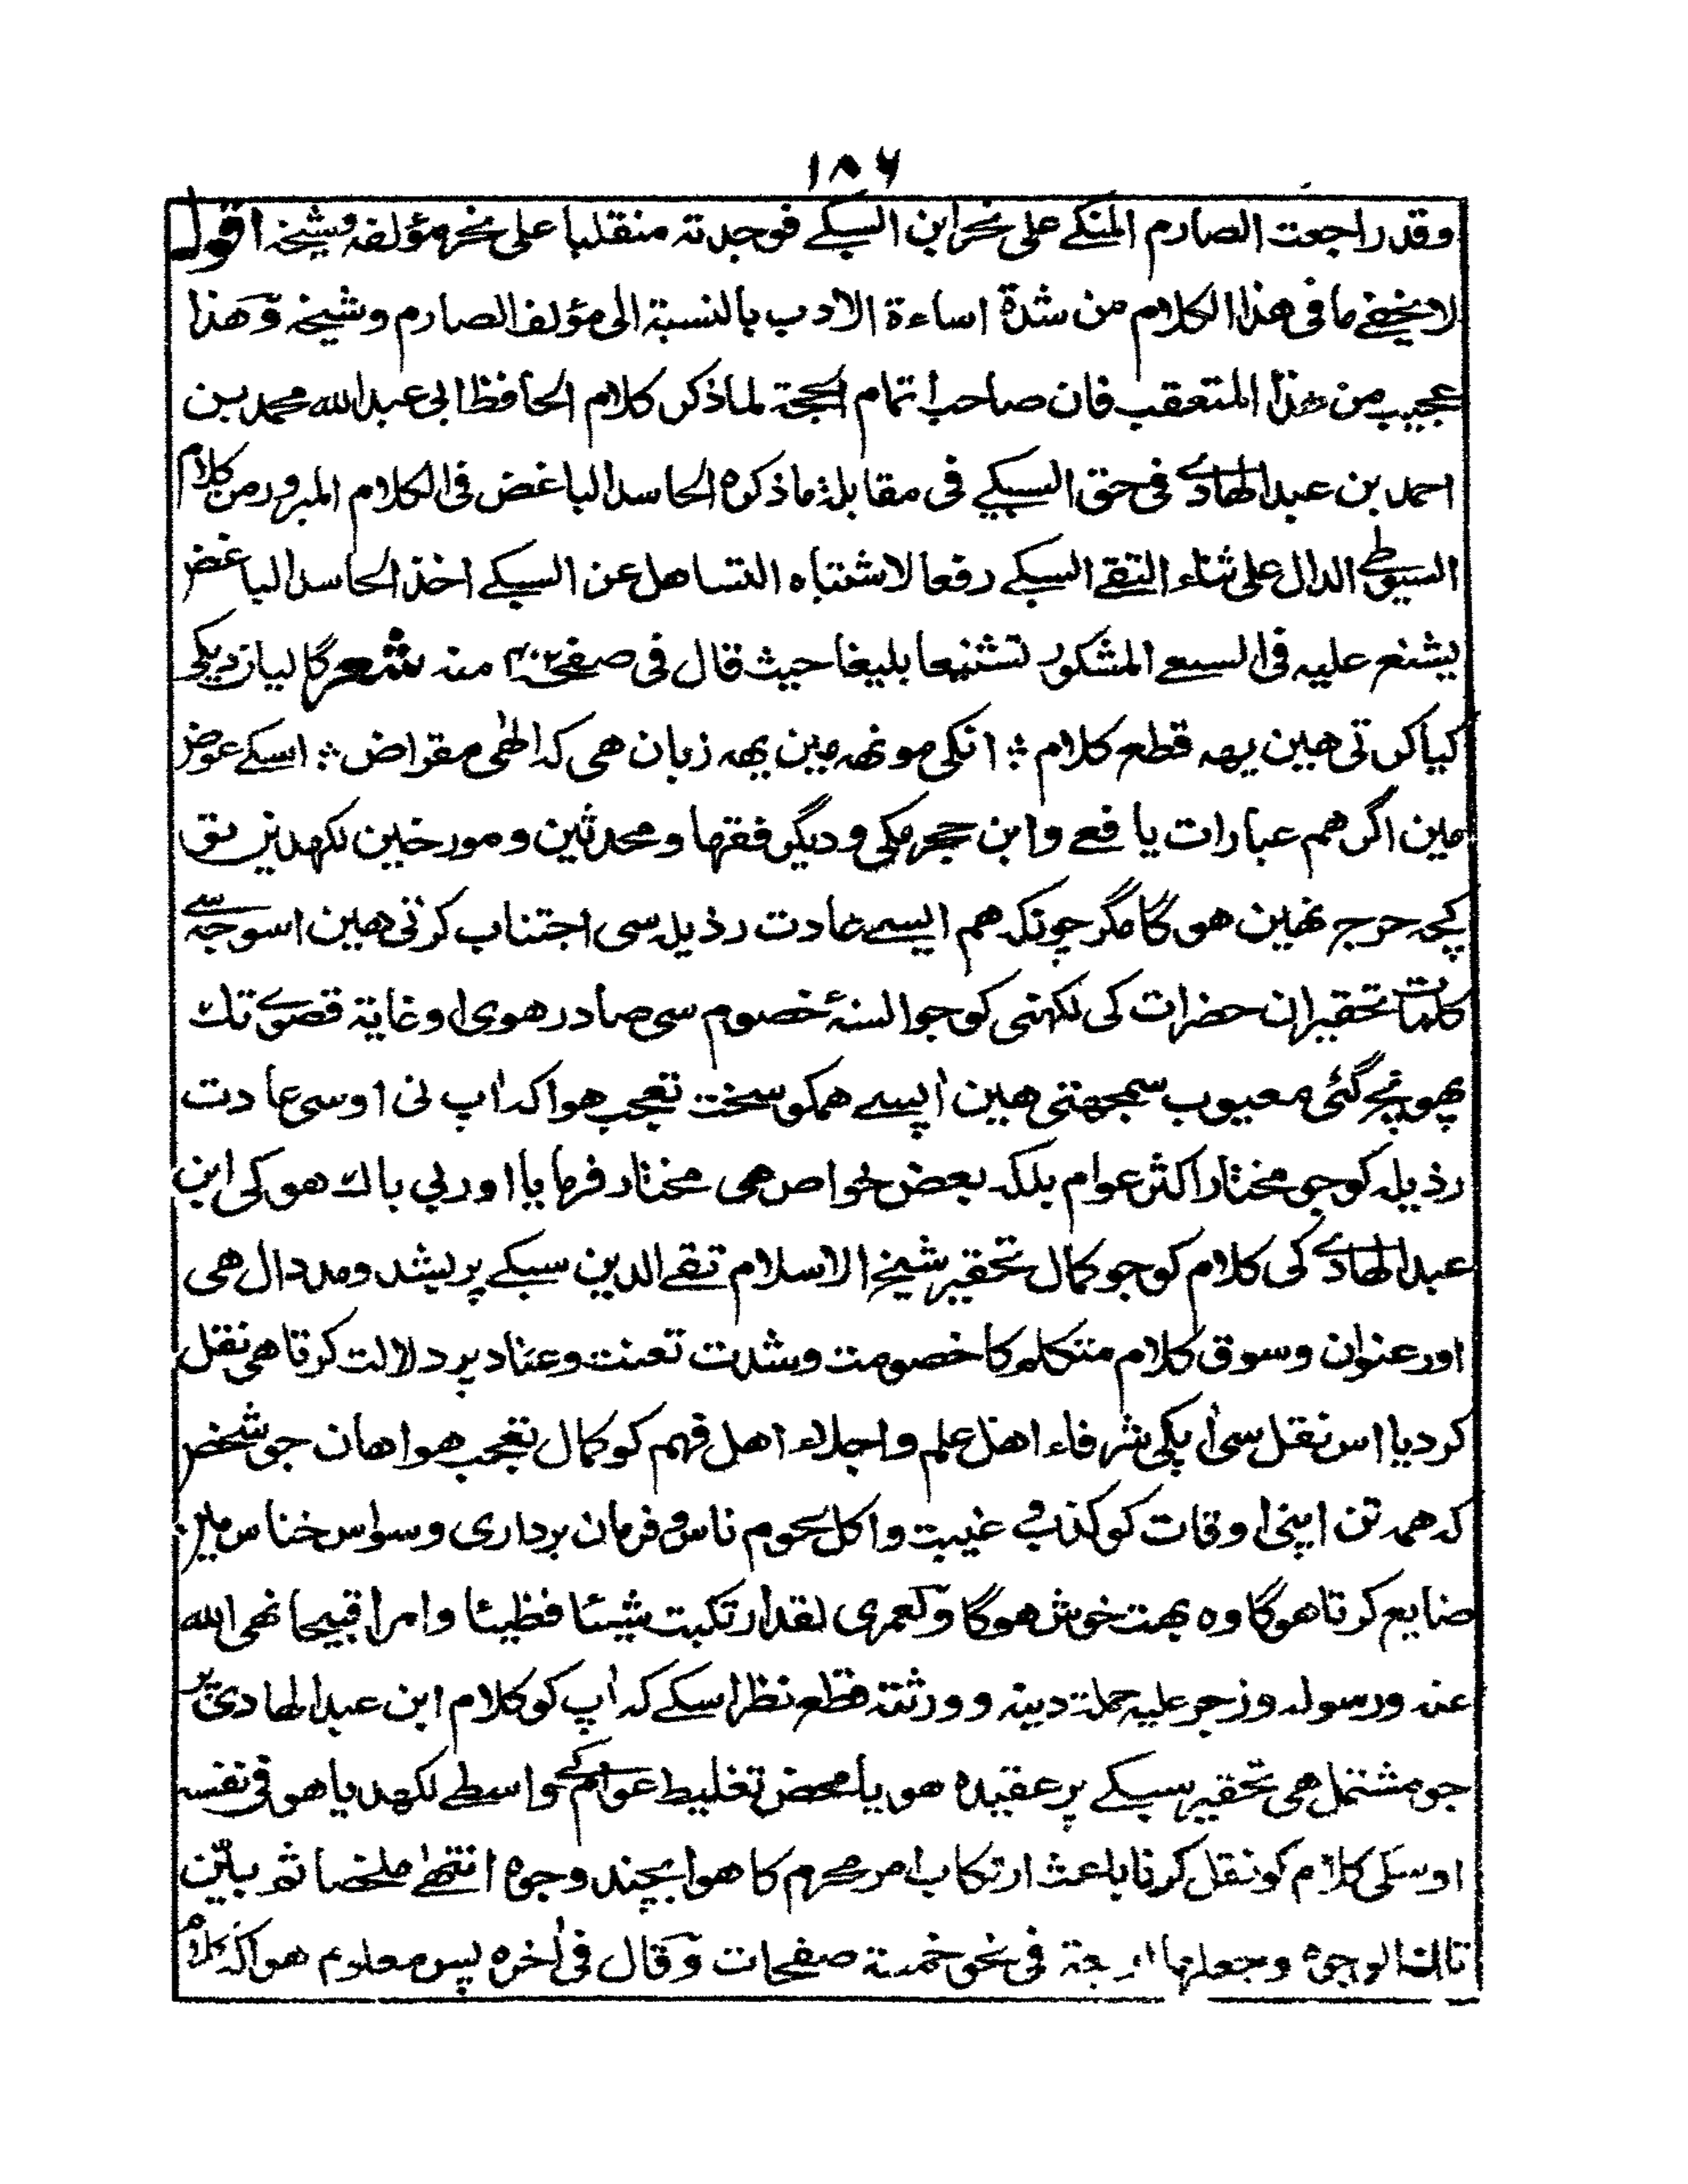 ١٨٦
وقد راجعت الصارم المنكے على نحر ابن السبكے فوجدته منقلبا على نحر مؤلفه وشيخه اقول
لا يخفے ما فى هذا الكلام من شدة اساءة الادب بالنسبة الى مؤلف الصارم وشيخه وهذا
عجيب من هذا المتعقب فان صاحب اتمام الحجة لما ذكر كلام الحافظ ابى عبد الله محمد بن
احمد بن عبد الهادے فى حق السبكے فى مقابلة ما ذكره الحاسد الباغض فى الكلام المبرور من كلام
السيوطے الدال على ثناء التقے السبكے رفعا لاشتباه التساهل عن السبكے اخذ الحاسد الباغض
يشنع عليه فى السعے المشكور تشنيعا بليغا حيث قال فى صفحه منه شعر گاليان ديكى
كيا كرتى هين يهه قطع كلام ؞ انكى مونهه مين يهه زبان هى كه الٰهى مقراض ؞ اسكے عوض
مين اگر هم عبارات يافعے وابن حجر مكى و ديگر فقها و محدثين و مورخين لكهدين تو
كچهه حرج نهين هوگا مگر چونكه هم ايسے عادت رذيله سى اجتناب كرتى هين اسوجه سے
كلمات تحقير ان حضرات كى لكهنى كو جو السنۂ خصوم سى صادر هوى اوغاية قصوے تك
پهونچے گئى معيوب سمجهتى هين اپسے همكو سخت تعجب هوا كه اٰپ نى اوسى عادت
رذيله كو جى مختار اكثر عوام بلكه بعض خواص هى مختار فرمايا اور بى باك هوكى ابن
عبد الهادے كى كلام كو جو كمال تحقير شيخ الاسلام تقے الدين سبكے پر بشد ومد دال هى
اور عنوان وسوق كلام متكلم كا خصومت وشدت تعنت وعناد پر دلالت كرتا هى نقل
كرديا اس نقل سى اٰپكى شرفاء اهل علم واجلاء اهل فهم كو كمال تعجب هوا هان جو شخص
كه همه تن اپنى اوقات كو كذب و غيبت واكل لحوم ناس و فرمان بردارى وسواس خناس مين
ضايع كرتا هوگا وه بهت خوش هوگا ولعمرى لقد ارتكبت شيئا فظيئا وامرا قبيحا نهى الله
عنه ورسوله وزجر عليه حملة دينه و ورثته قطع نظر اسكے كه اٰپ كو كلام ابن عبد الهادى پر
جو مشتمل هى تحقير سبكے پر عقيده هو يا محض تغليط عوام كے واسطے لكهديا هو فى نفسه
اوسكى كلام كو نقل كرنا باعث ارتكاب امر محرم كا هوا بچند وجوه انتهےٰ ملخصا ثم بين
تلك الوجوه وجعلها اربعة فى نحو خمسة صفحات وقال فى اٰخره پس معلوم هوا كه كلام